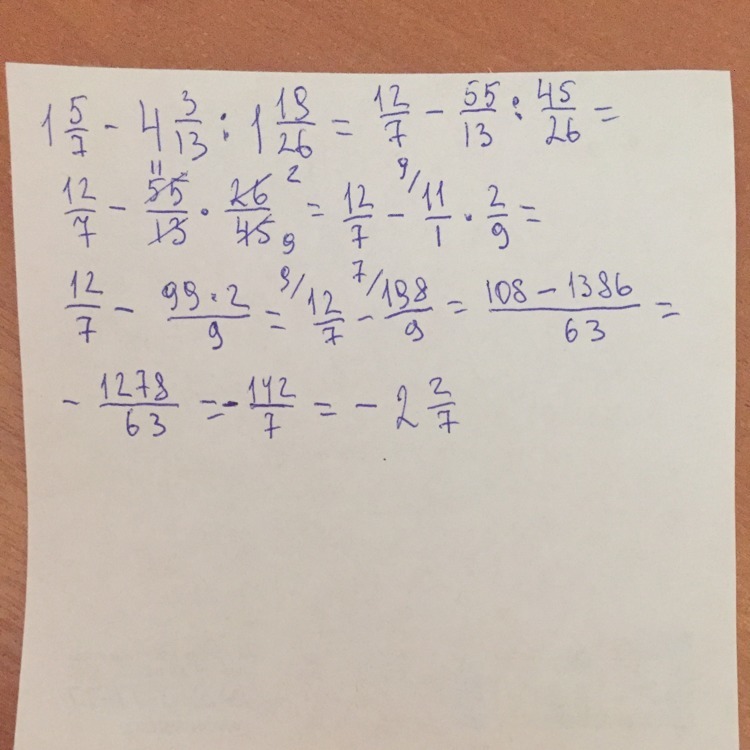 1 5/7 - 4 3/13 : 1 19/26 = 12/7 - 55/13 : 45/26 =
12/7 - 55/13 11 · 26/45 2 9 = 12/7 - 9/ 11/1 · 2/9 =
12/7 - 99·2/9 = 9/ 12/7 - 7/ 198/9 = 108 - 1386/63 =
- 1278/63 = - 142/7 = - 2 2/7